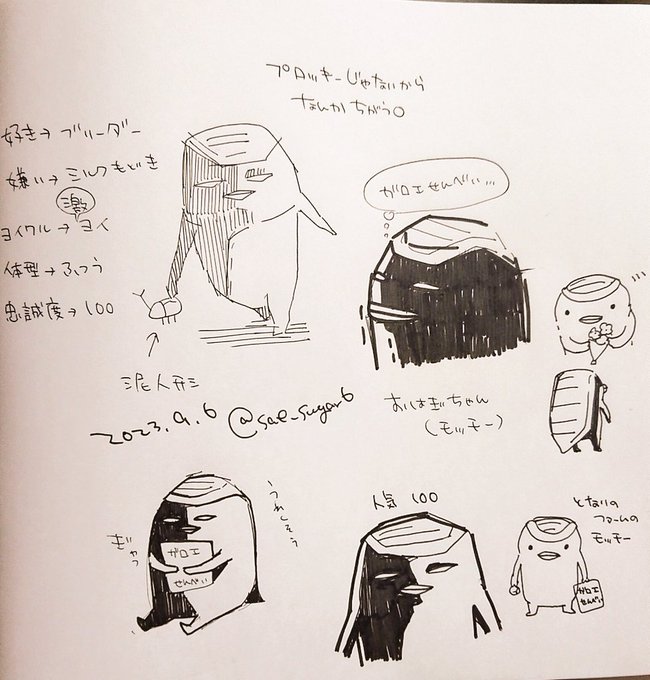 プロッキーじゃないから
なんかちがう○
好き→ブリーダー
嫌い→ミルクもどき
激
ヨイワル→ヨイ
体型→ふつう
忠誠度→100
泥人形
2023.9.6 @sae_sugar6
ガロエせんべい…
おはぎちゃん
(モッチー)
うれしそう
ぎゅっ
ガロエ
せんべい
人気 100
となりの
ファームの
モッチー
ガロエ
せんべい